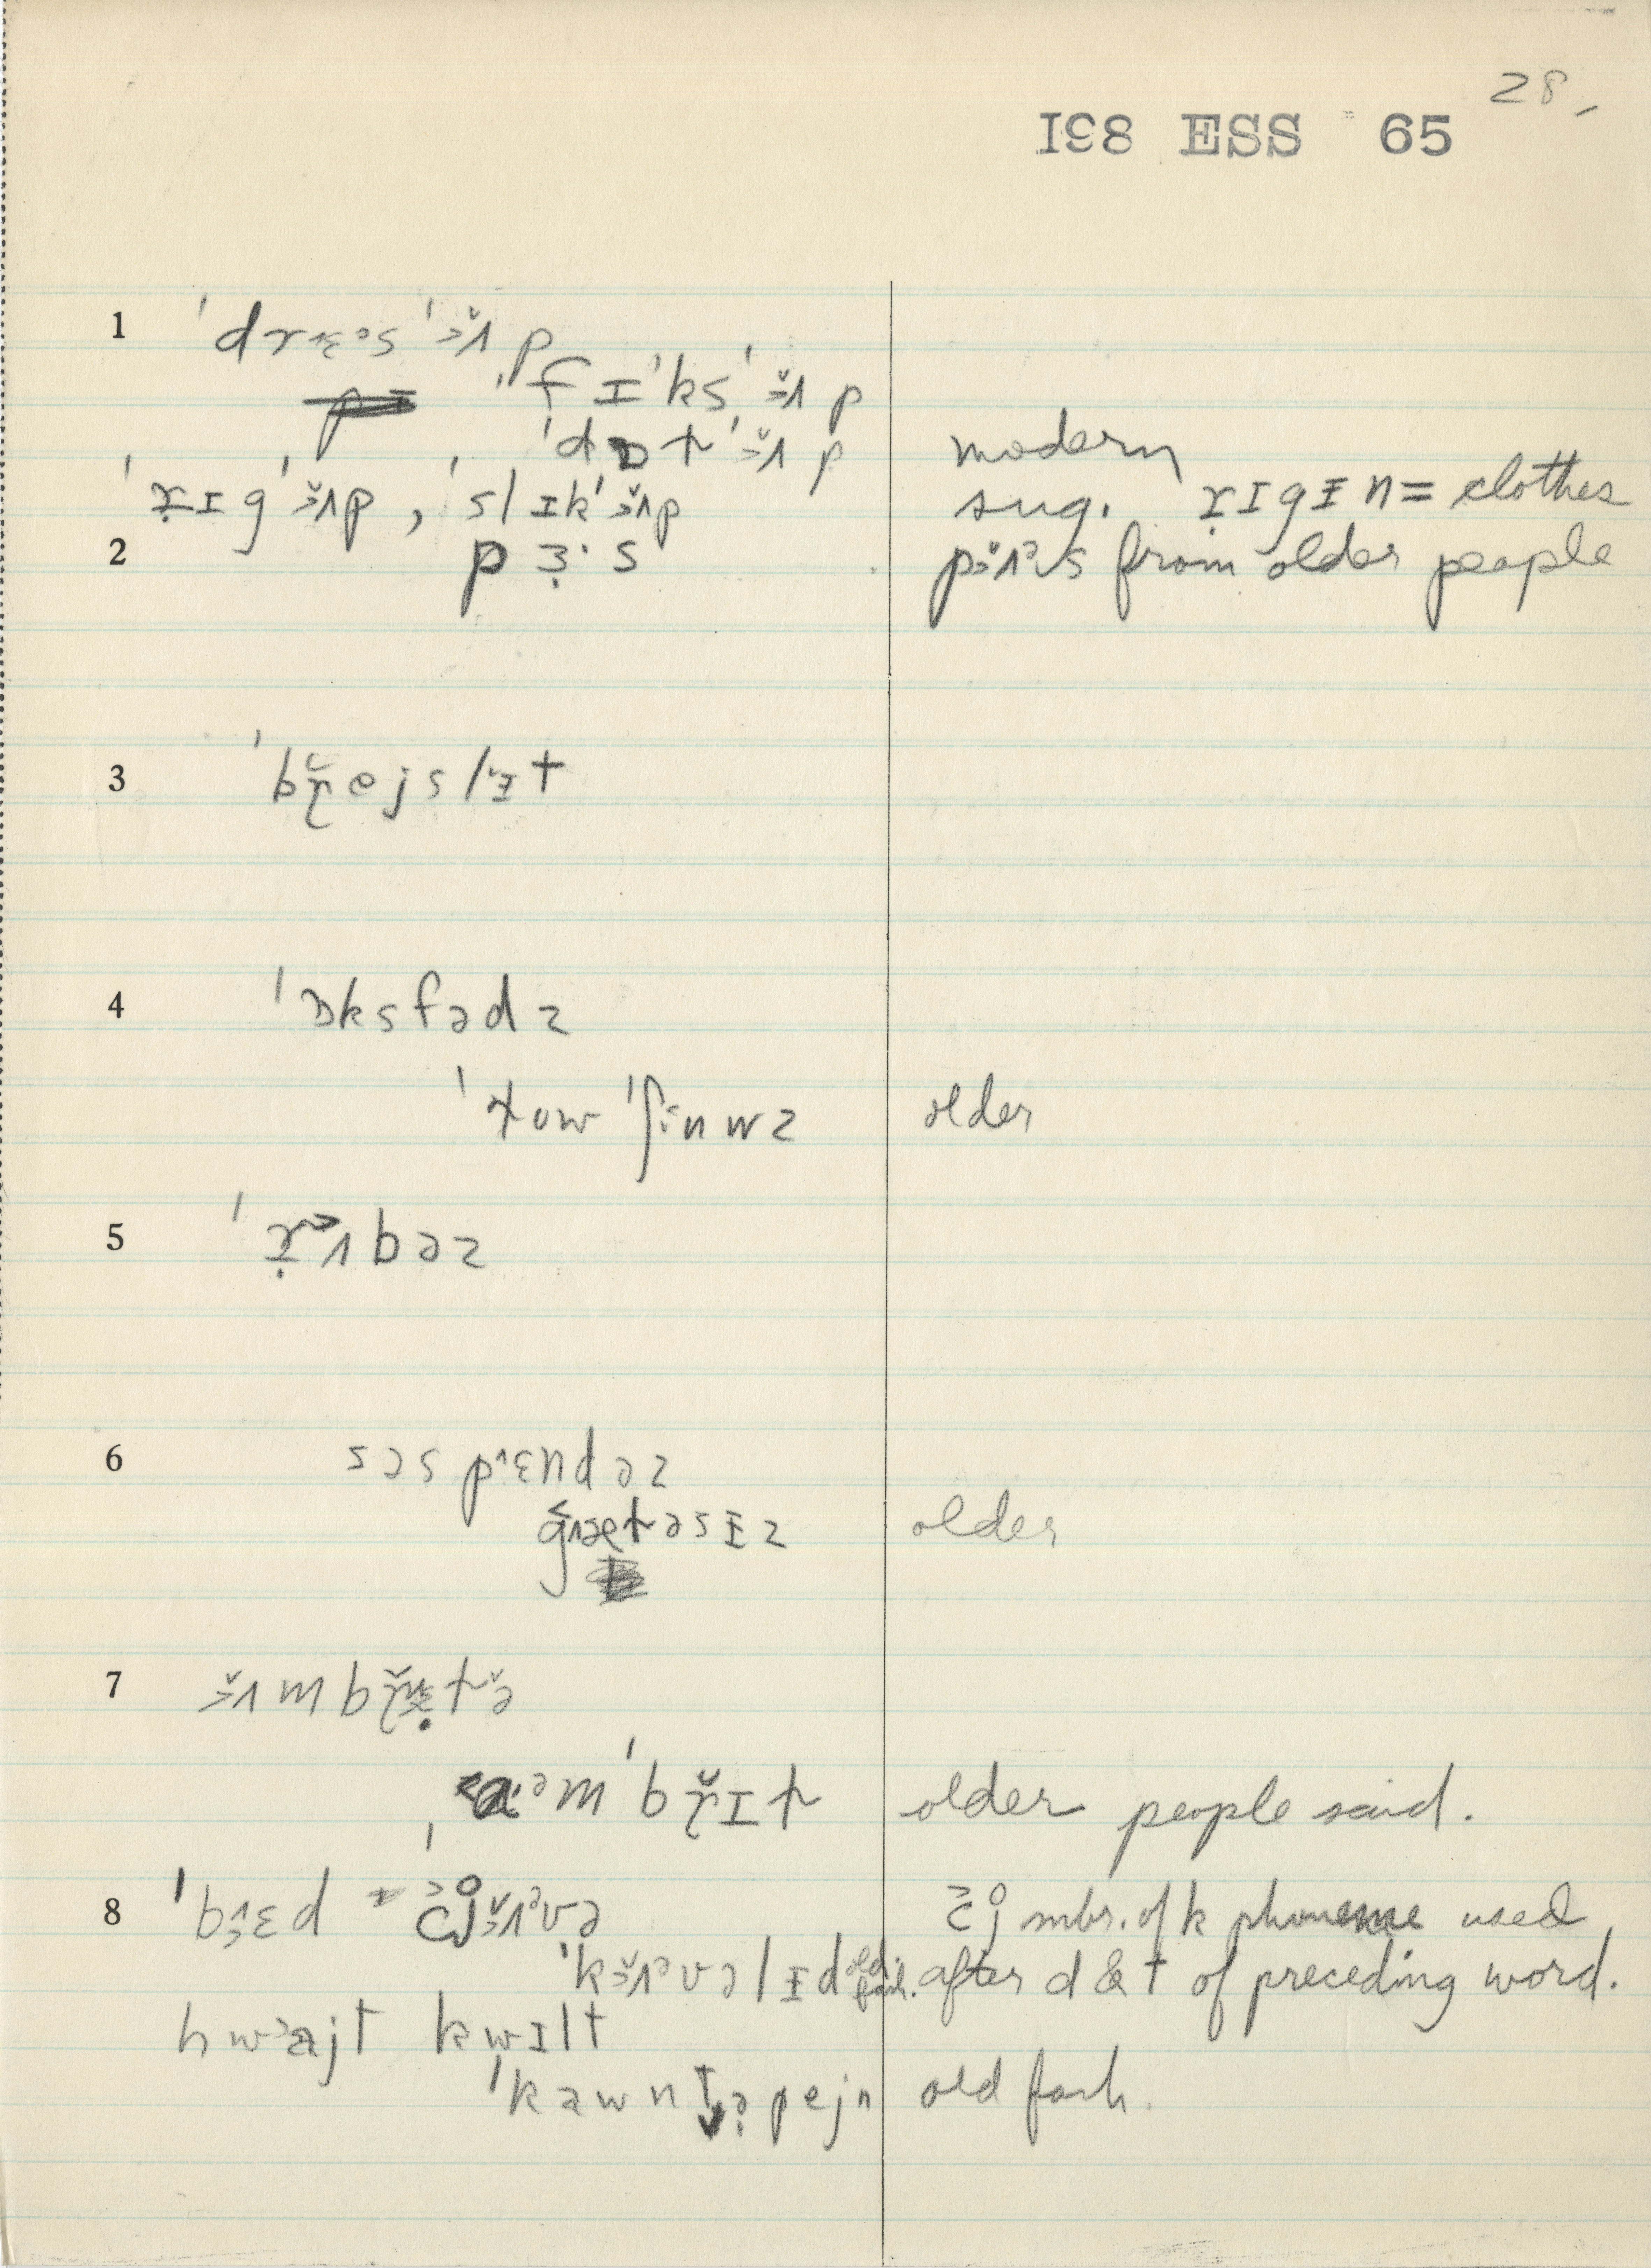 28.
198 ESS 65
1 ˈdrɛəs ˈɜ̆ʌp
ˈfɪˈks ˈɜ̆ʌp
ˈdɒt ˈɜ̆ʌp modern
ˈrɪg ˈɜ̆ʌp , ˈslɪk ˈɜ̆ʌp sug. rɪgɨn = clothes
2 pɜ·s pɜ̆ʌəs from older people
3 ˈbr̆ejslɨt
4 ˈɒksfədz
ˈtow ˈʃinwz older
5 ˈrʌbəz
6 səspɛndəz
gætəsɨz older
7 ɜ̆ʌmbr̆ɛtə̆
aəmˈbr̆ɪt older people said.
8 ˈbɛd ˈcj̊ɜ̆ʌəvə cj̊ mbr. of k phoneme used
ˈkɜ̆ʌəvəlɨd old fash. after d & t of preceding word.
hwajt kwɪlt
ˈkawntəpejn old fash.